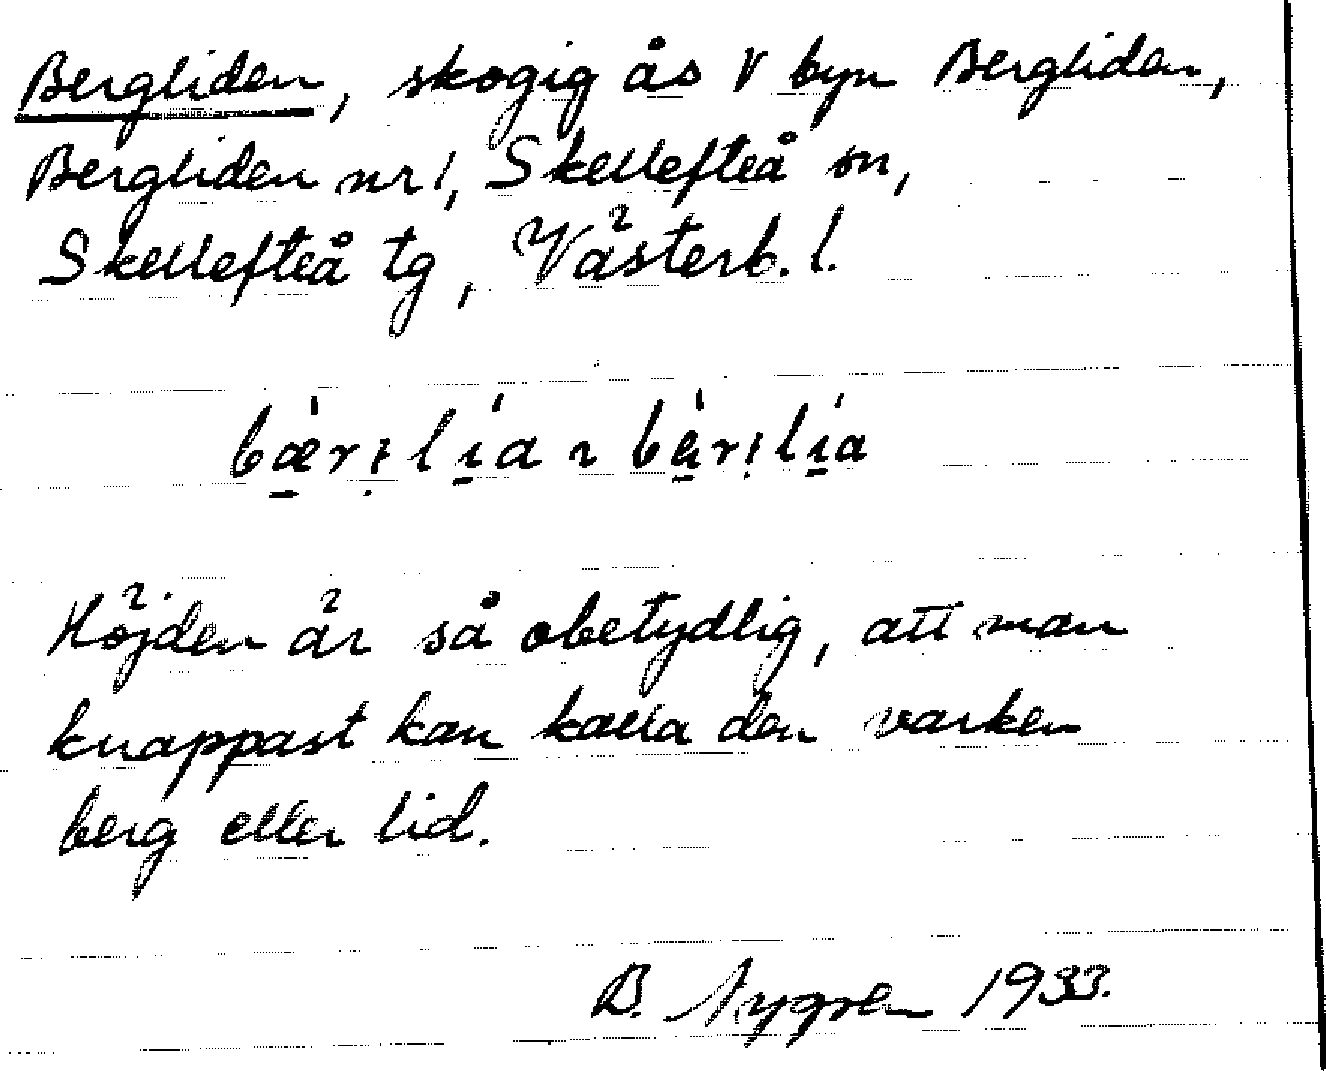 Bergliden, skogig ås V byn Bergliden,
Bergliden nr 1, Skellefteå sn,
Skellefteå tg, Västerb. l.
Höjden är så obetydlig, att man
knappast kan kalla den varken
berg eller lid.
B. Nygren 1933.